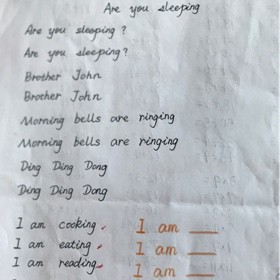 Are you sleeping
Are you sleeping?
Are you sleeping?
Brother John
Brother John
Morning bells are ringing
Morning bells are ringing
Ding Ding Dong
Ding Ding Dong
I am cooking. I am ___
I am eating. I am ___
I am reading. I am ___